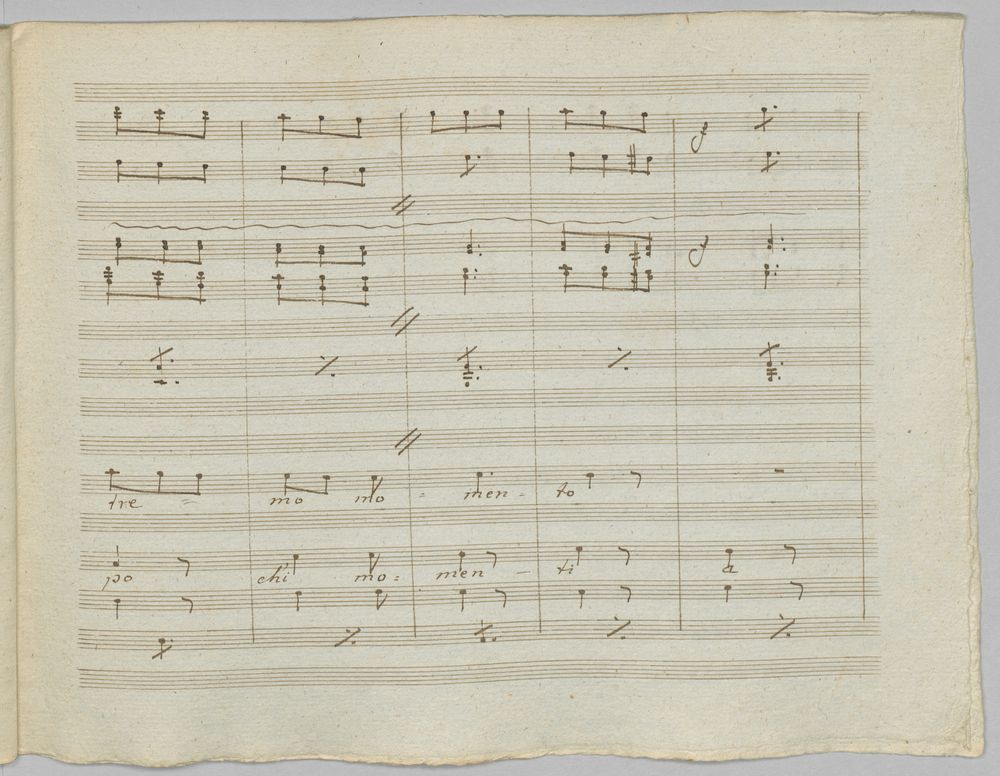 f
f
tre = mo mo = men = to
po chi mo = men - ti a